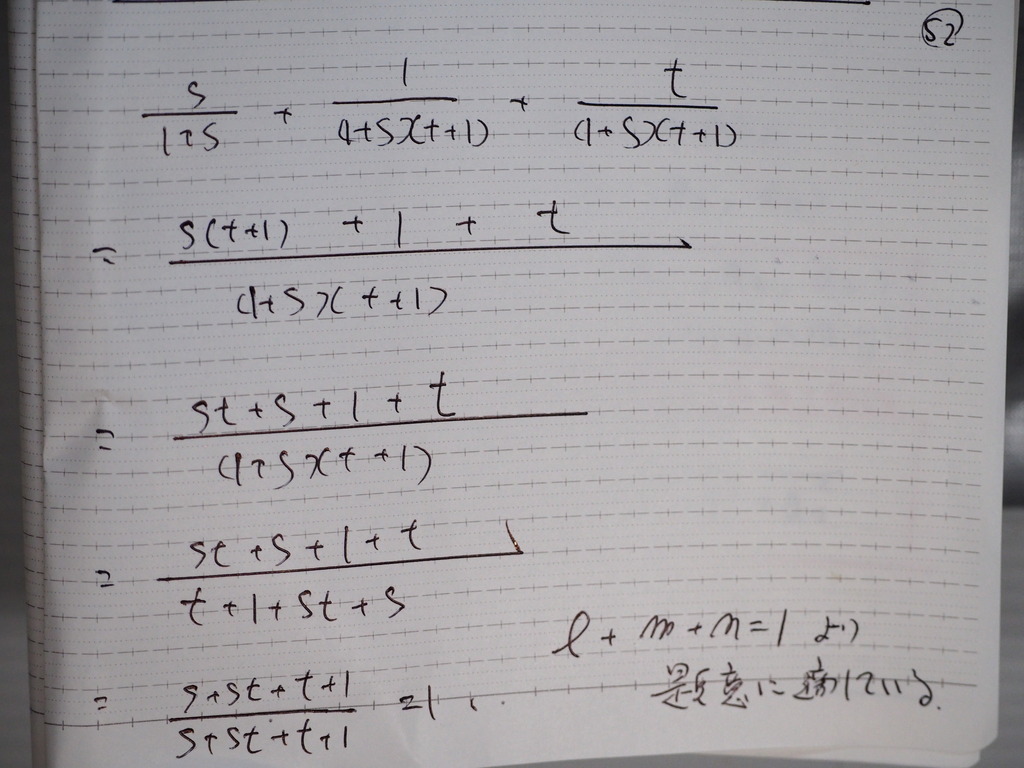 52
s/(1+s) + 1/((1+s)(t+1)) + t/((1+s)(t+1))
= (s(t+1) + 1 + t)/((1+s)(t+1))
= (st+s+1+t)/((1+s)(t+1))
= (st+s+1+t)/(t+1+st+s)
= (s+st+t+1)/(s+st+t+1) =1.
l+m+n=1 より
題意に適している.